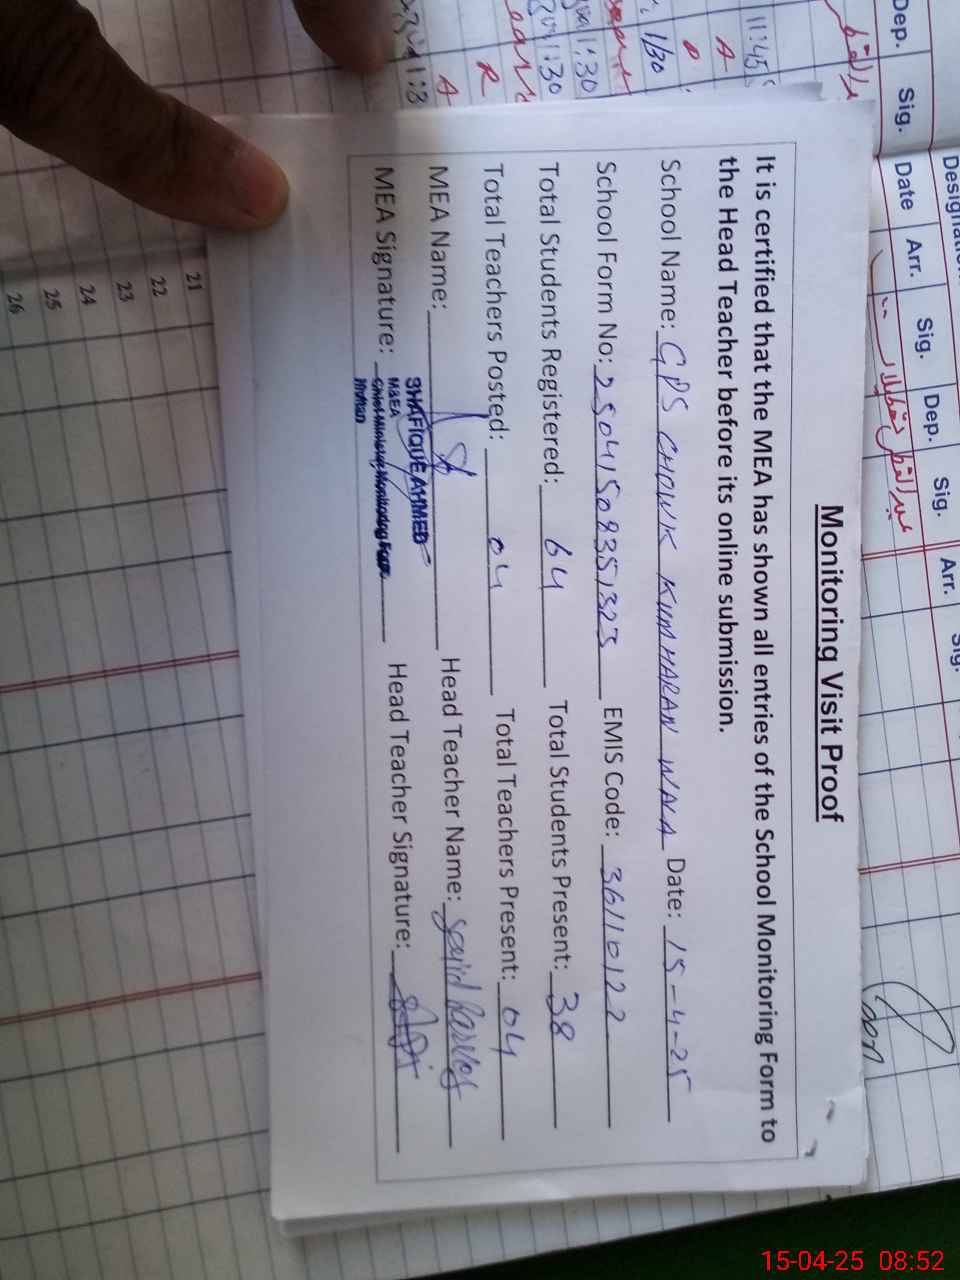 Monitoring Visit Proof
It is certified that the MEA has shown all entries of the School Monitoring Form to
the Head Teacher before its online submission.
School Name: GPS CHOWK KUMHARAN WALA Date: 15-4-25
School Form No: 25041508351323 EMIS Code: 36110122
Total Students Registered: 64 Total Students Present: 38
Total Teachers Posted: 04 Total Teachers Present: 04
MEA Name: Head Teacher Name: Sajid
SHAFIQUE AHMED
MEA Signature: Head Teacher Signature:
M&EA
Chief Minister Monitoring Force
Multan
Dep. Sig. Date Arr. Sig. Dep. Sig. Arr. Sig.
11:45
A
1/30
1:30
A
R
21
22
23
24
25
26
15-04-25 08:52